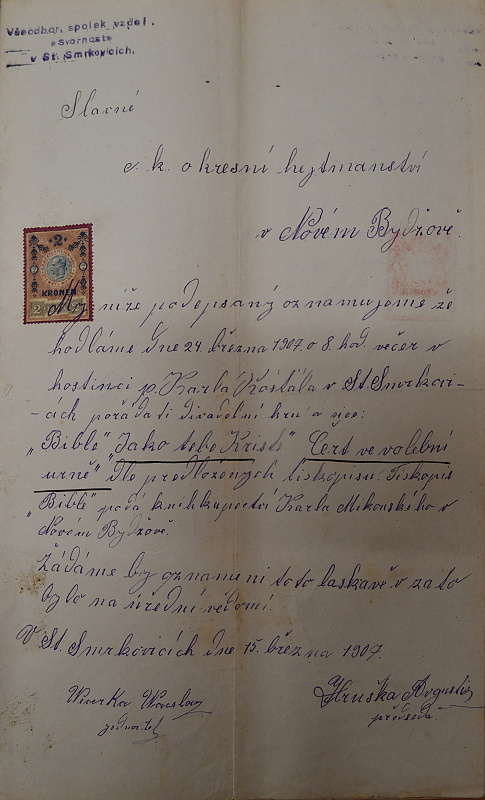 Všeodbor. spolek vzděl.
„Svornost“
v St. Smrkovicích.
Slavné
c. k. okresní hejtmanství
v Novém Bydžově.
2
KRONEN
2
My níže podepsaný oznamujeme že
hodláme dne 24. března 1907. o 8. hod. večer v
hostinci p. Karla Košťála v St. Smrkovi-
-cích pořádati divadelní hru a sice:
„Bible“ „Jako tebe Kriste“ „Čert ve volební
urně“ Dle předložených tiskopisu. Tiskopis
„Bible“ podá knihkupectví Karla Mikouského v
Novém Bydžově.
Žádáme by oznameni toto laskavě v zato
bylo na úřední vědomí.
V St. Smrkovicích dne 15. března 1907.
Wewerka Wácslav
jednatel
Hruška Augustin
předseda.